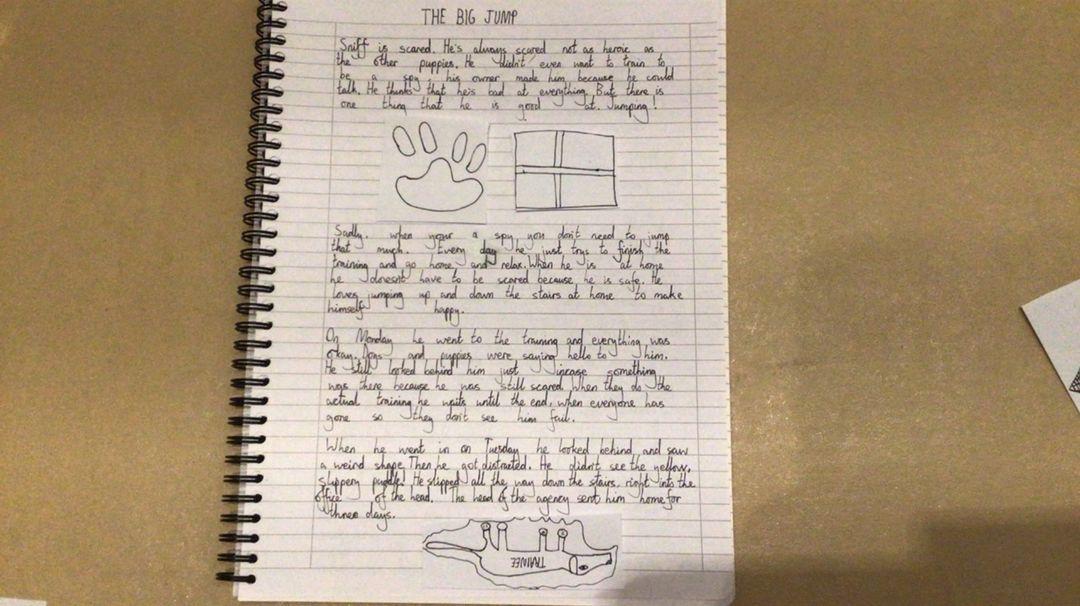 THE BIG JUMP
Sniff is scared. He's always scared not as heroic as
the other puppies. He didn't even want to train to
be a spy, his owner made him because he could
talk. He thinks that he's bad at everything. But there is
one thing that he is good at. Jumping!
Sadly, when your a spy you don't need to jump
that much. Every day he just trys to finish the
training and go home and relax. When he is at home
he doesn't have to be scared because he is safe. He
loves jumping up and down the stairs at home to make
himself happy.
On Monday he went to the training and everything was
okay. Dogs and puppies were saying hello to him.
He still looked behind him just incase something
was there because he was still scared. When they do the
actual training he waits until the end, when everyone has
gone so they don't see him fail.
When he went in on Tuesday he looked behind and saw
a weird shape. Then he got distracted. He didn't see the yellow,
slippery puddle! He slipped all the way down the stairs, right into the
office of the head. The head of the agency sent him home for
three days.
TRAINEE